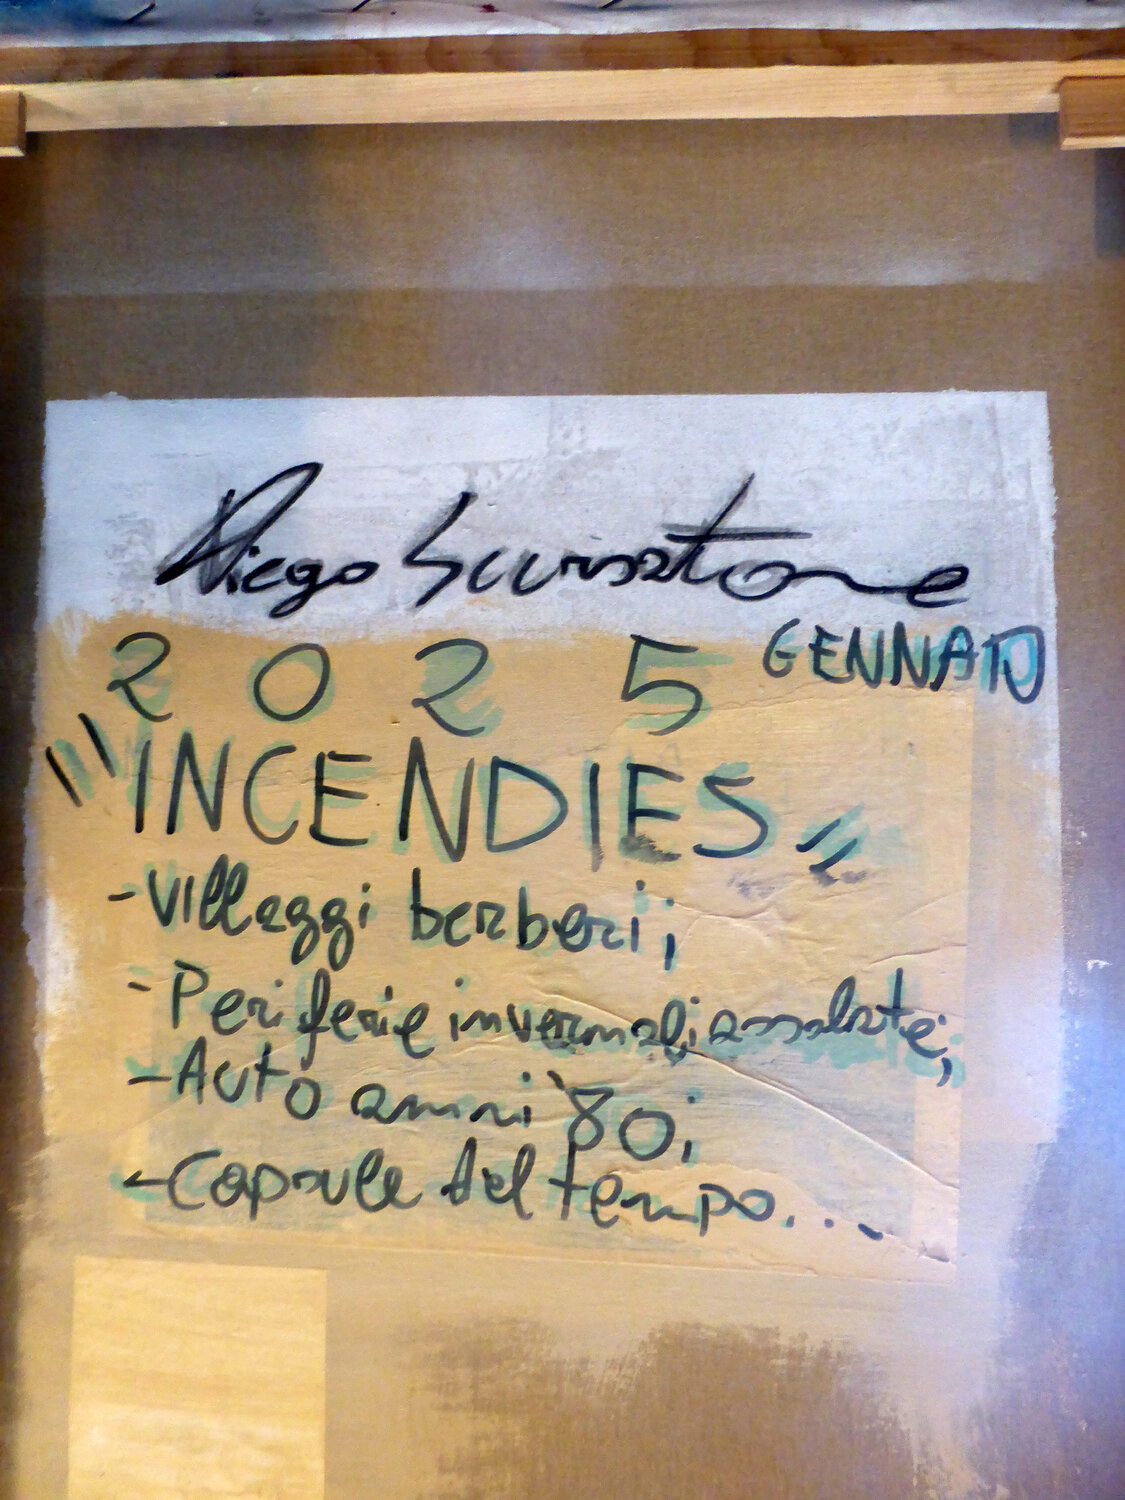 Diego
2025 GENNAIO
"INCENDIES"
- Villaggi berberi;
- Periferie invernali assolate;
- Auto anni '80;
- Capsule del tempo...